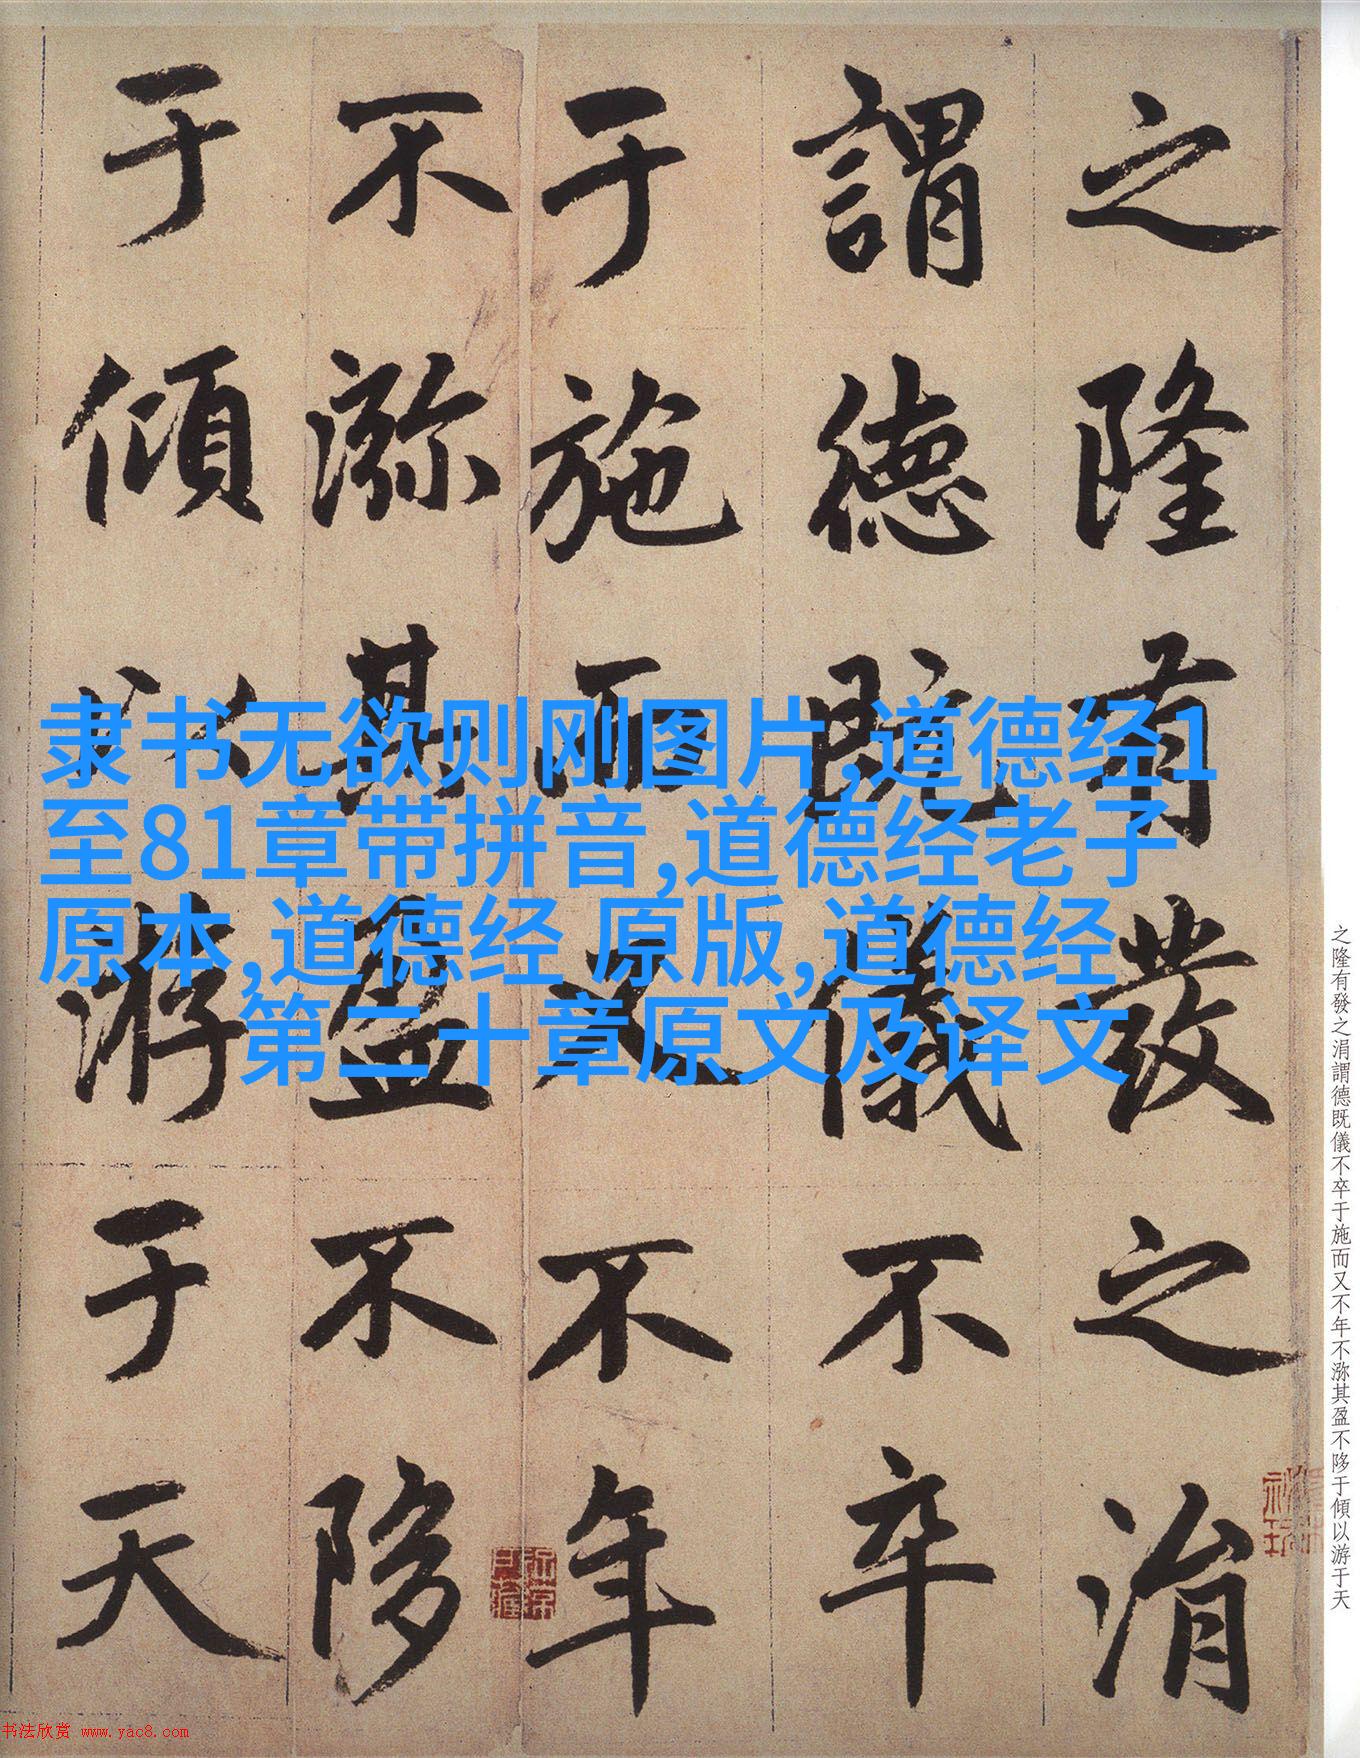 之隆有發之涓
謂德既儀不卒
于施而又不年
不㳽其盈不陊
于傾以游于天
隶书无欲则刚图片,道德经1
至81章带拼音,道德经老子
原本,道德经 原版,道德经
第二十章原文及译文
之隆有發之涓謂德既儀不卒于施而又不年不㳽其盈不陊于傾以游于天
书法欣赏 www.yac8.com